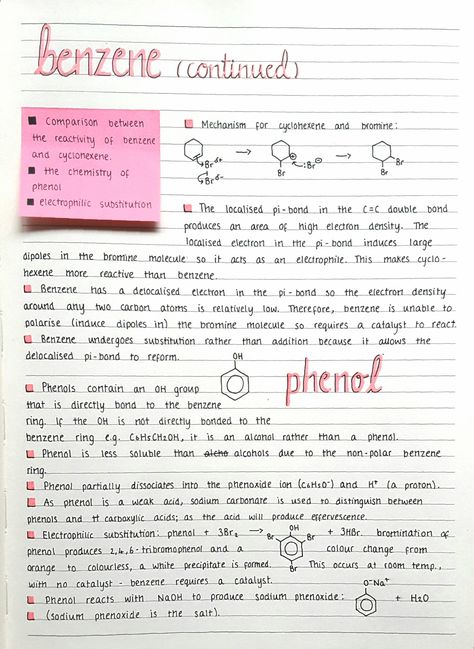 benzene (continued)
■ Comparison between
the reactivity of benzene
and cyclohexene.
■ the chemistry of
phenol
■ electrophilic substitution
Mechanism for cyclohexene and bromine:
Br δ+
Br δ-
⊕
Br
:Br⊖
Br
Br
The localised pi-bond in the C=C double bond
produces an area of high electron density. The
localised electron in the pi-bond induces large
dipoles in the bromine molecule so it acts as an electrophile. This makes cyclo-
hexene more reactive than benzene.
Benzene has a delocalised electron in the pi-bond so the electron density
around any two carbon atoms is relatively low. Therefore, benzene is unable to
polarise (induce dipoles in) the bromine molecule so requires a catalyst to react.
Benzene undergoes substitution rather than addition because it allows the
delocalised pi-bond to reform.
OH
phenol
Phenols contain an OH group
that is directly bond to the benzene
ring. If the OH is not directly bonded to the
benzene ring e.g. C6H5CH2OH, it is an alcohol rather than a phenol.
Phenol is less soluble than alcho alcohols due to the non-polar benzene
ring.
Phenol partially dissociates into the phenoxide ion (C6H5O-) and H+ (a proton).
As phenol is a weak acid, sodium carbonate is used to distinguish between
phenols and carboxylic acids; as the acid will produce effervescence.
Electrophilic substitution: phenol + 3Br2 → OH Br Br Br + 3HBr. bromination of
phenol produces 2,4,6-tribromophenol and a colour change from
orange to colourless, a white precipitate is formed. This occurs at room temp.,
with no catalyst - benzene requires a catalyst.
Phenol reacts with NaOH to produce sodium phenoxide: O-Na+ + H2O
(sodium phenoxide is the salt).